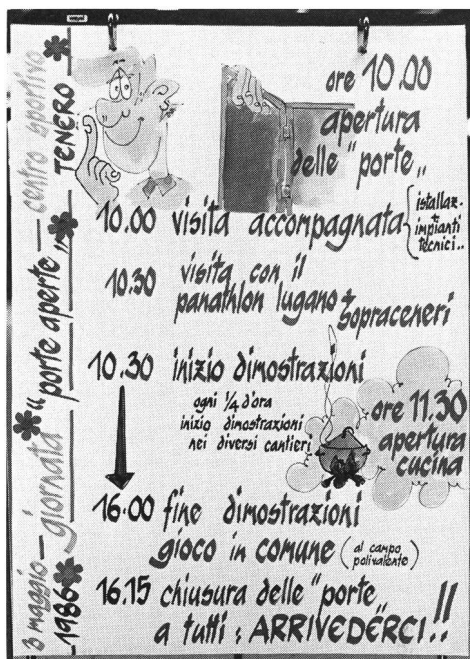 3 maggio — giornata "porte aperte" — centro sportivo
1986 TENERO
ore 10.00
apertura
delle "porte"
10.00 visita accompagnata
istallaz.
impianti
tecnici..
10.30 visita con il
panathlon lugano
+ sopraceneri
10.30 inizio dimostrazioni
ogni 1/4 d'ora
inizio dimostrazioni
nei diversi cantieri
ore 11.30
apertura
cucina
16.00 fine dimostrazioni
gioco in comune (al campo
polivalente)
16.15 chiusura delle "porte"
a tutti : ARRIVEDERCI..!!